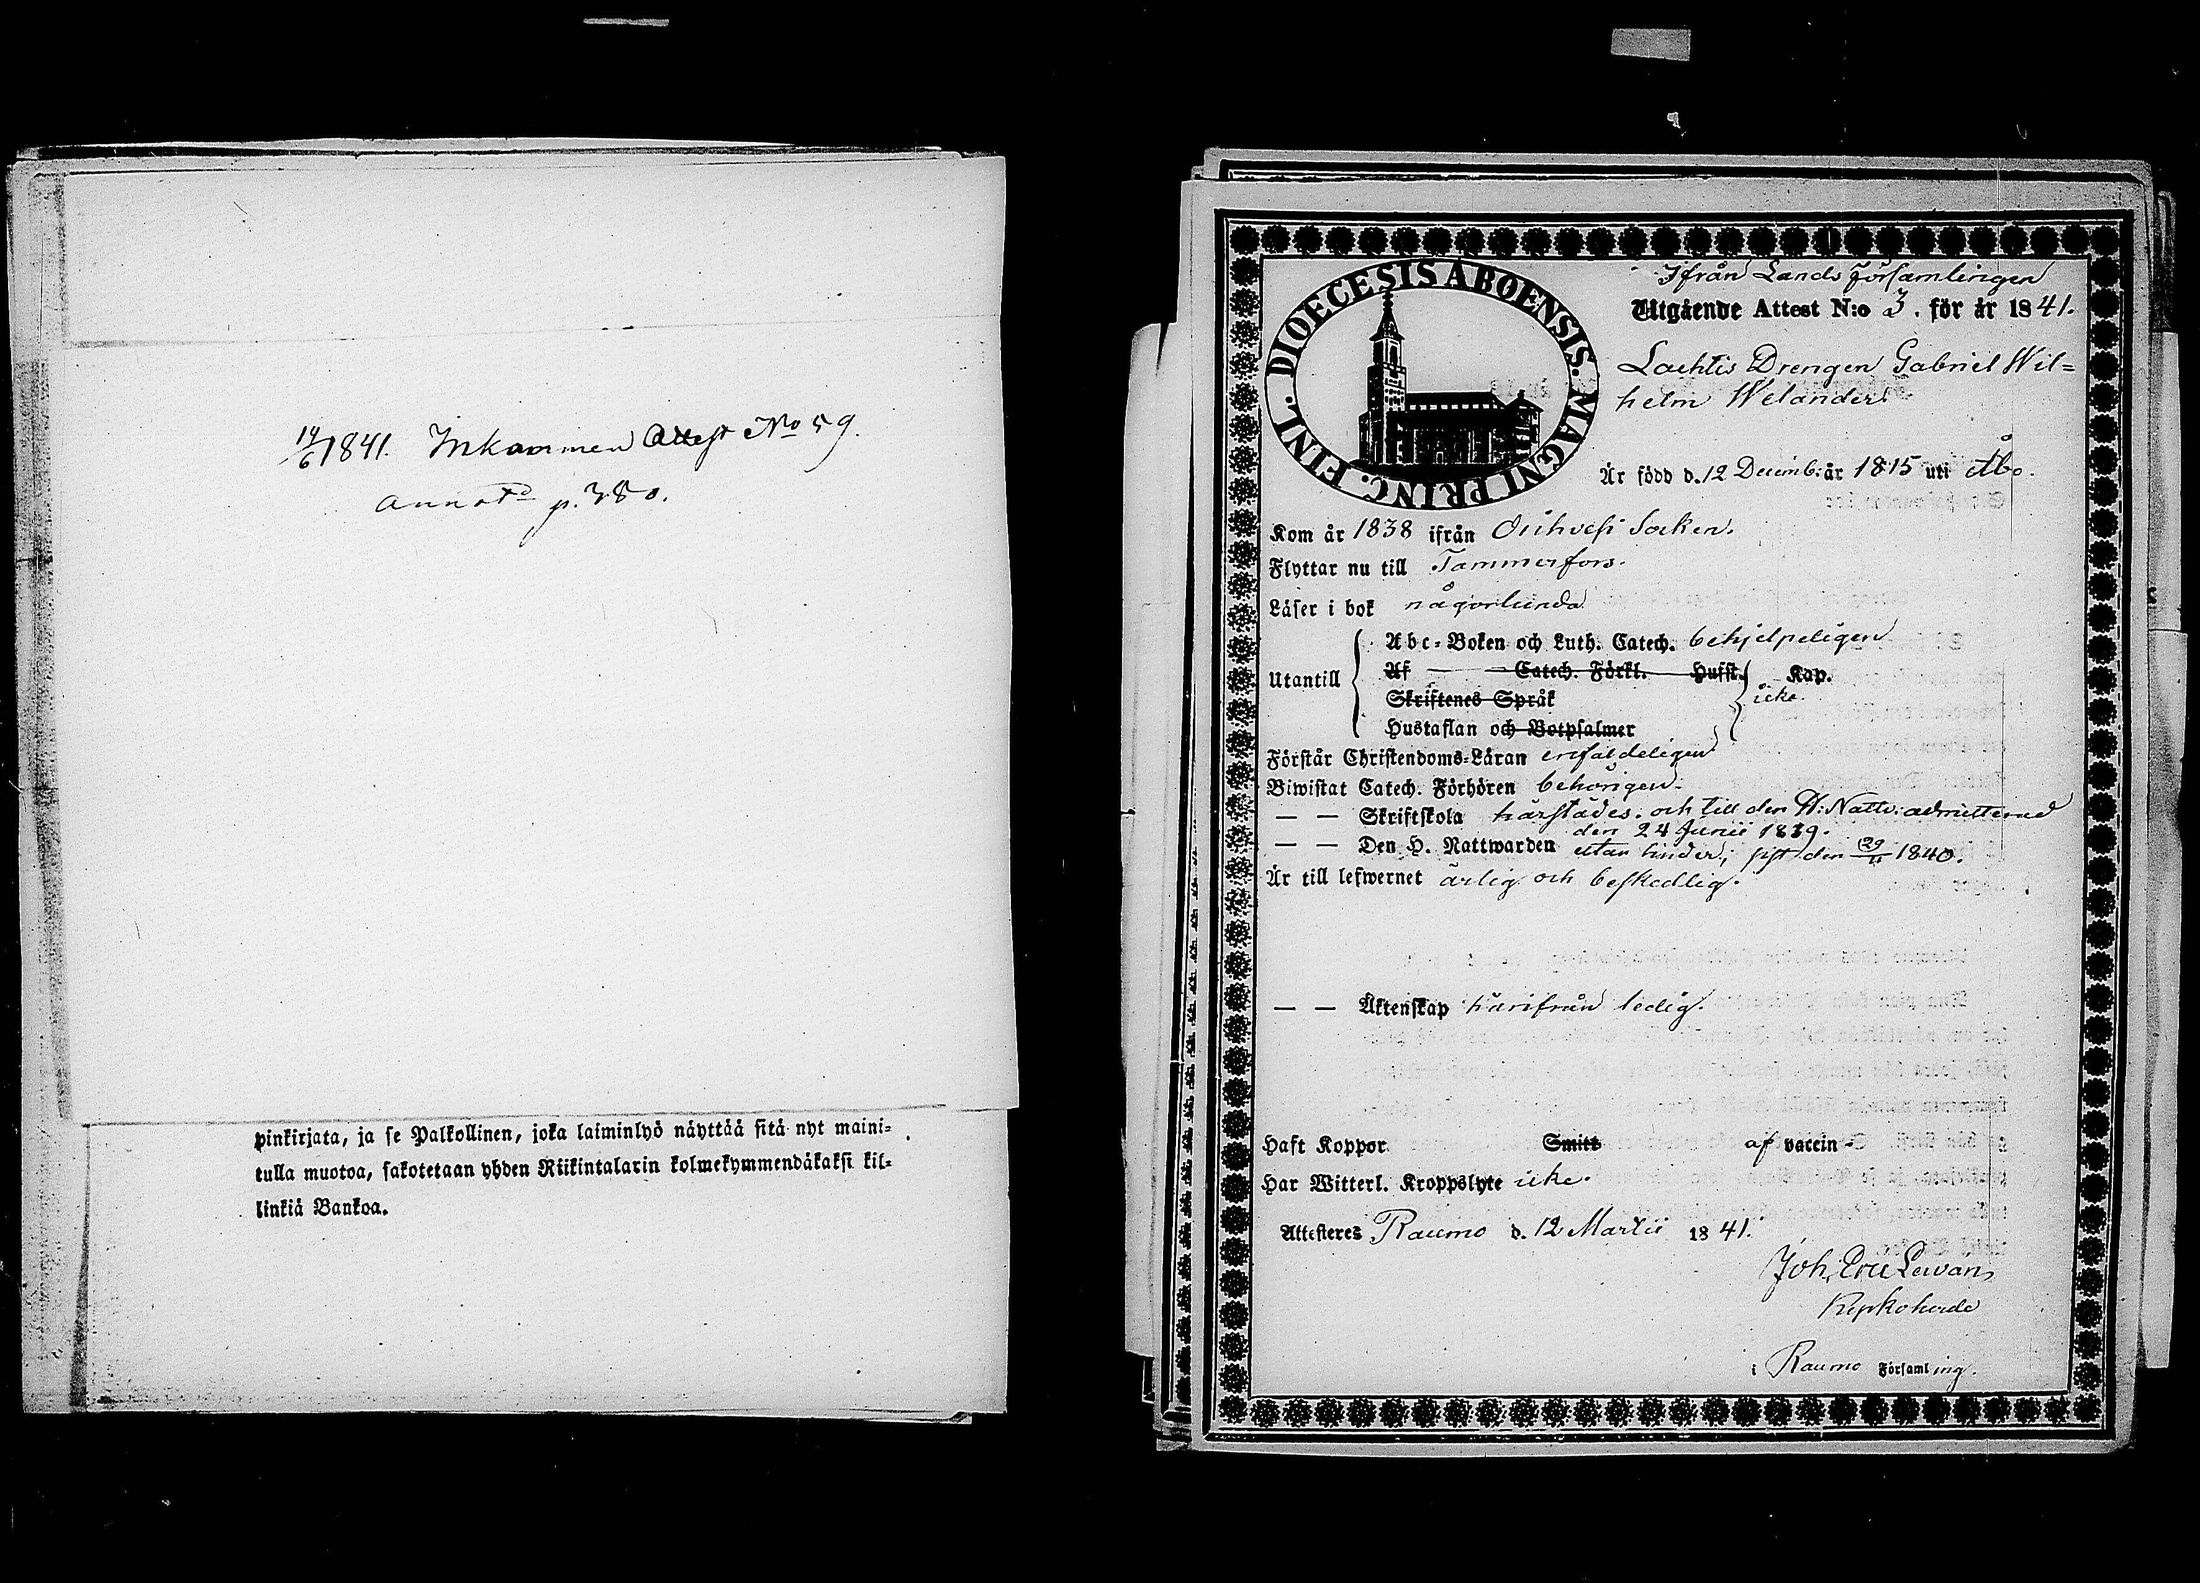 14/6 1841. Inkommen Attest No 59.
Annot^d p. 380.
pinkirjata, ja se Palkollinen, joka laiminlyö näyttää sitä nyt maini=
tulla muotoa, sakotetaan yhden Riikintalarin kolmekymmendäkaksi kil=
linkiä Bankoa.
DIOECESIS ABOENSIS. MAGNI PRINC. FINL.
Ifrån Lands Församlingen
Utgående Attest N:o 3. för år 1841.
Drengen Gabriel Wil=
helm Welander.
Är född d. 12 Decemb. år 1815 uti Åbo.
Kom år 1838 ifrån Socken.
Flyttar nu till Tammerfors.
Läser i bok någorlunda
Utantill
Abc=Boken och Luth. Catech. behjelpeligen
Af — — Catech. Förkl. — Husst. — Kap.
Skriftenes Språk icke.
Hustaflan och Botpsalmer
Förstår Christendoms=Läran enfaldeligen
Biwistat Catech. Förhören behörigen.
— — Skriftskola härstädes. och till den H: Nattv: admitterad
den 24 Junii 1839.
— — Den H. Nattwarden utan hinder, sist den 29/11 1840.
Är till lefwernet ärlig och beskedlig.
— — Äktenskap härifrån ledig.
Haft Koppor Smitt af vaccin -
Har Witterl. Kroppslyte icke.
Attesteres Raumo d. 12 Martii 1841.
Joh. Eric Lewan,
Kyrkoherde
i Raumo Församling.